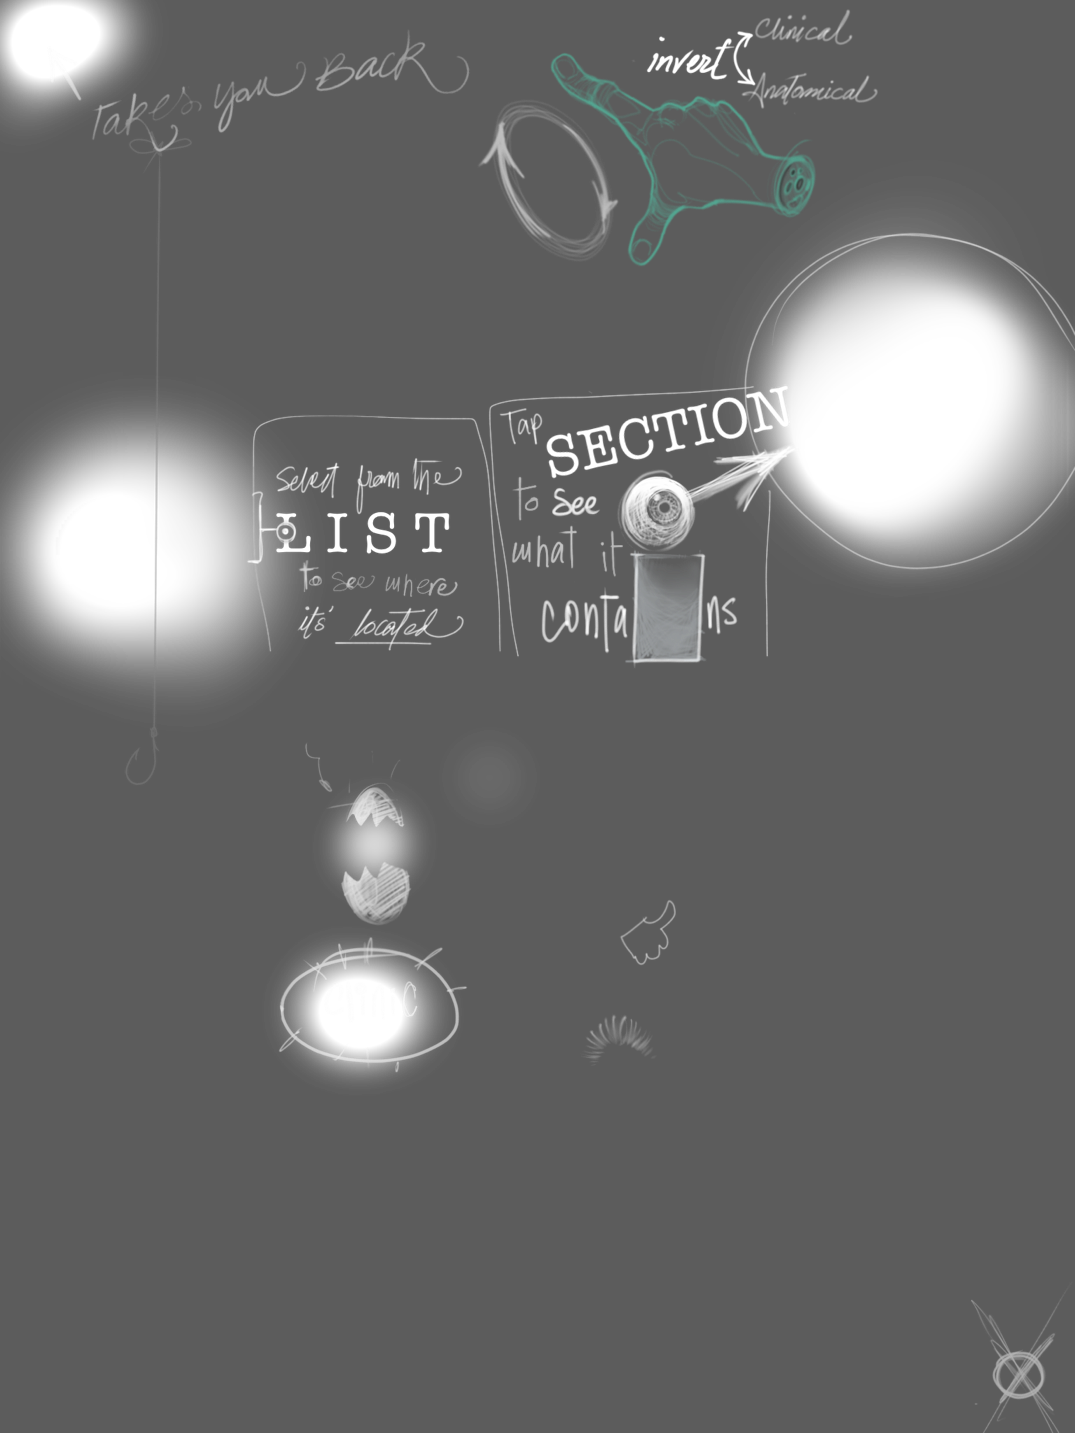 Takes you Back
invert
Clinical
Anatomical
Select from the
LIST
to see where
its' located
Tap
SECTION
to see
what it
contains